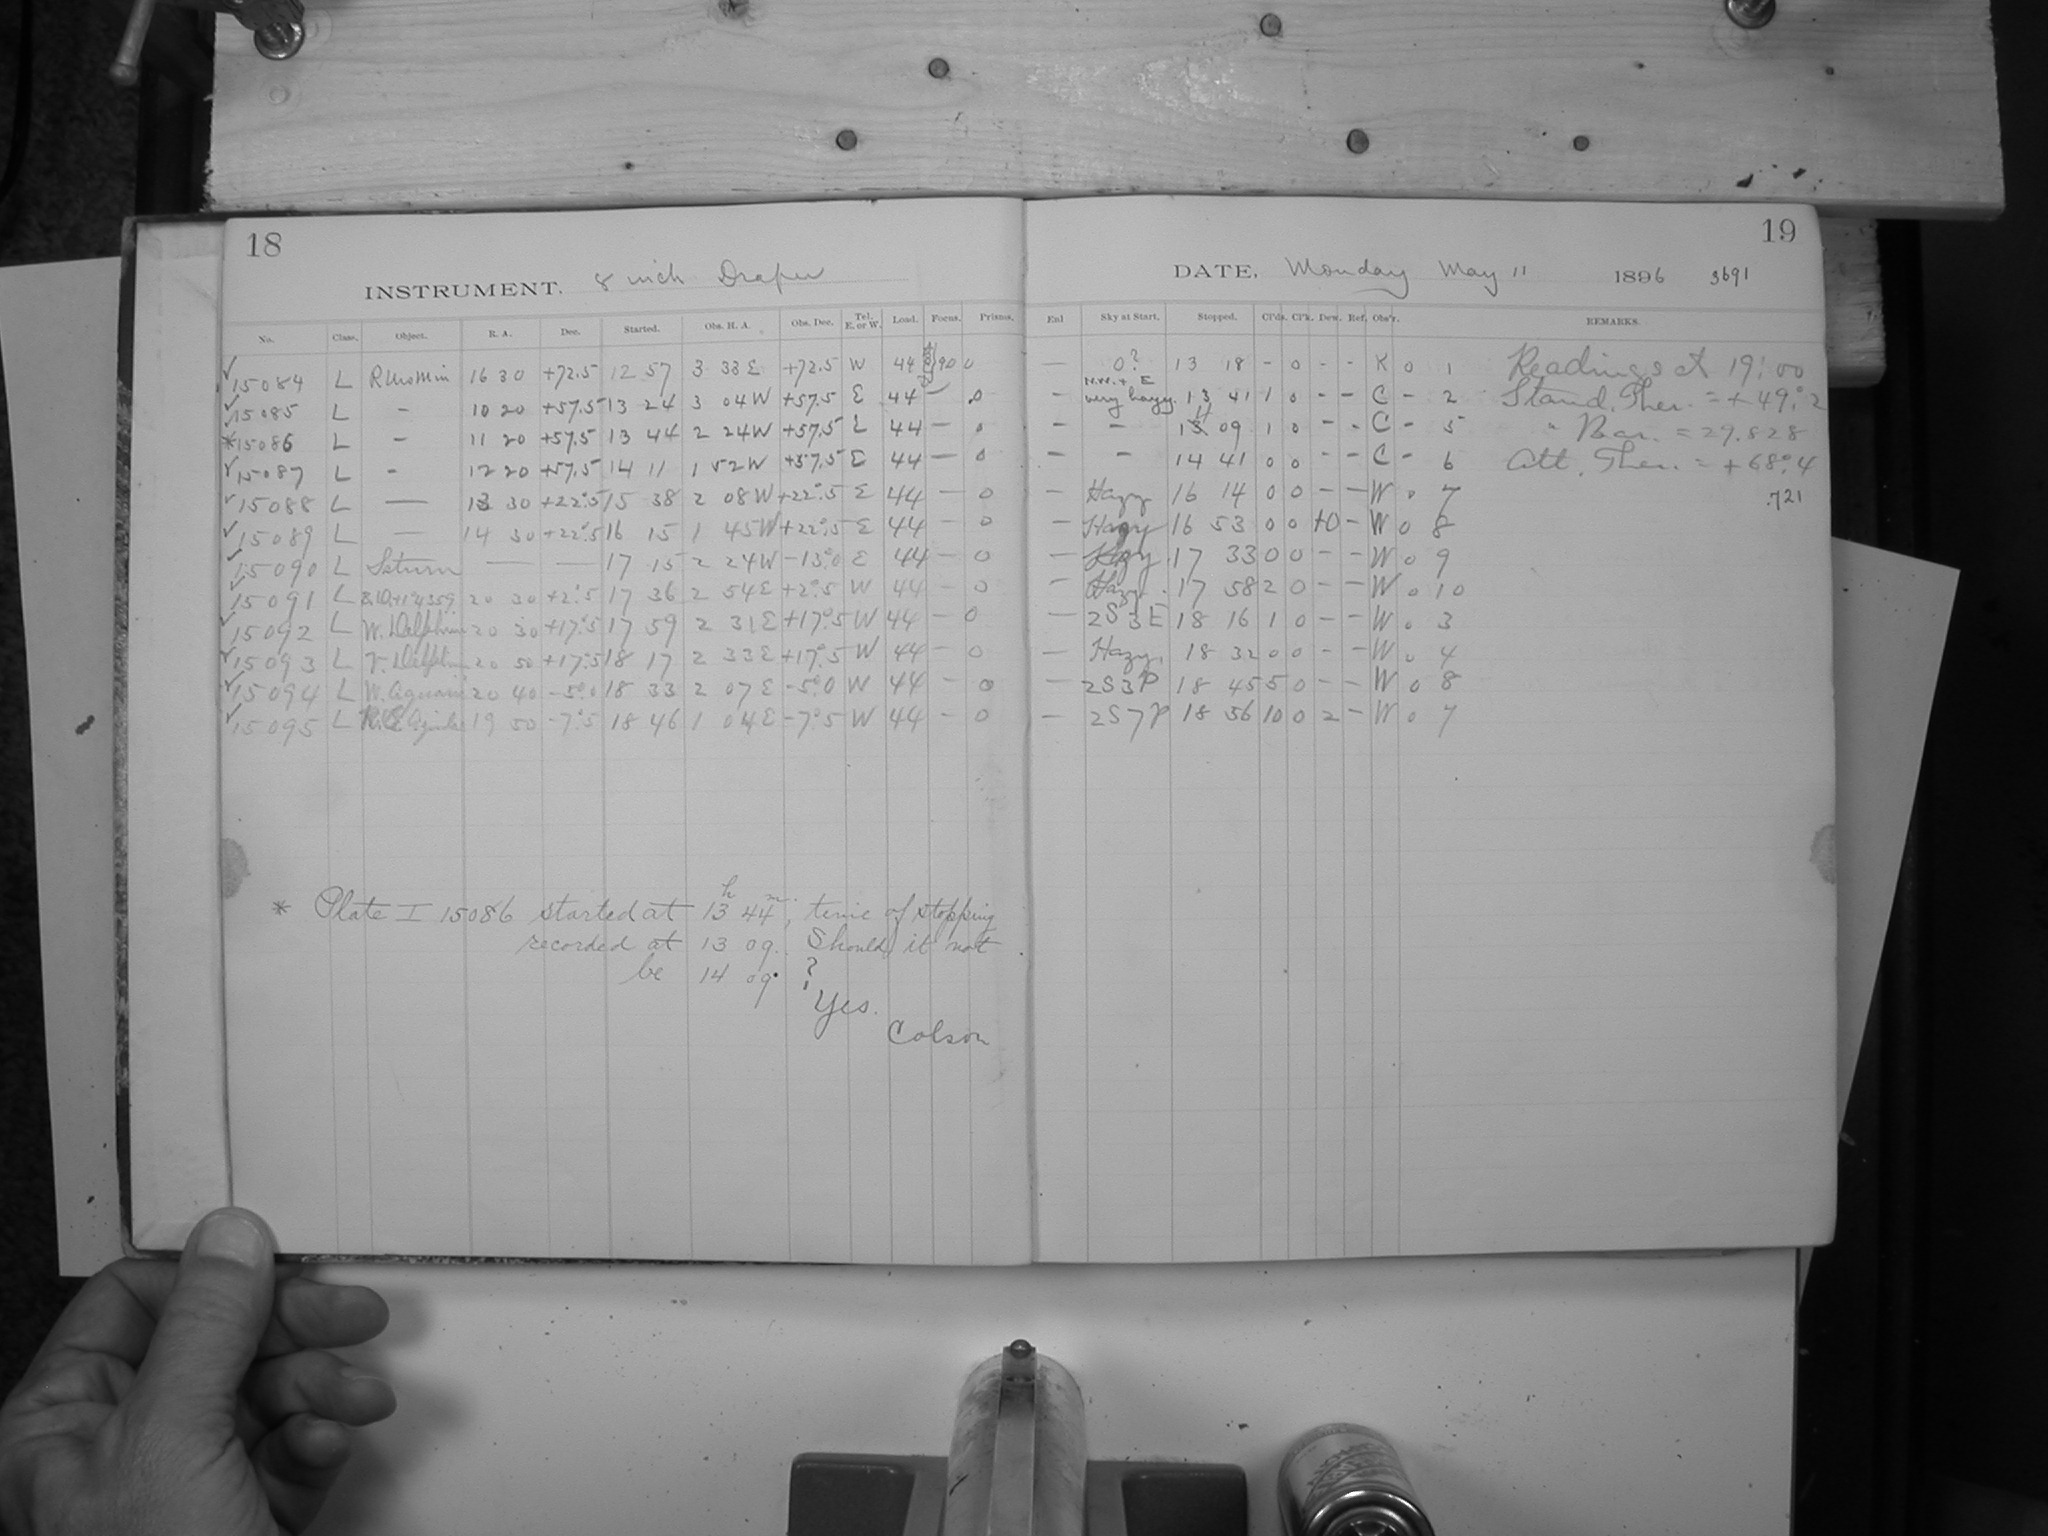 18
INSTRUMENT. 8 inch Draper
No. Class. Object. R. A. Dec. Started. Obs. H. A. Obs. Dec. Tel. E. or W. Load. Focus. Prisms.
15084 L R Urs Min 16 30 +72.5 12 57 3 33 E +72.5 W 44 90 0
15085 L - 10 20 +57.5 13 24 3 04 W +57.5 E 44 - 0
*15086 L - 11 20 +57.5 13 44 2 24 W +57.5 E 44 - 0
15087 L - 12 20 +57.5 14 11 1 52 W +57.5 E 44 - 0
15088 L - 13 30 +22°.5 15 38 2 08 W +22°.5 E 44 - 0
15089 L - 14 30 +22°.5 16 15 1 45 W +22°.5 E 44 - 0
15090 L Saturn - - 17 15 2 24 W -13°.0 E 44 - 0
15091 L 20 30 +2°.5 17 36 2 54 E +2°.5 W 44 - 0
15092 L W. Delphin 20 30 +17°.5 17 59 2 31 E +17°.5 W 44 - 0
15093 L V. Delphin 20 50 +17°.5 18 17 2 33 E +17°.5 W 44 - 0
15094 L W. Aquarii 20 40 -5°.0 18 33 2 07 E -5°.0 W 44 - 0
15095 L 19 50 -7°.5 18 46 1 04 E -7°.5 W 44 - 0
* Plate I 15086 started at 13h 44m, time of stopping
recorded at 13 09. Should it not
be 14 09. ?
Yes.
Colson
19
DATE. Monday May 11 1896 3691
Enl Sky at Start. Stopped. Cl'ds. Cl'k. Dew. Ref. Obs'r. REMARKS.
- 0? 13 18 - 0 - - K 0 1 Readings at 19:00
N.W. + E
- very hazy. 13 41 1 0 - - C - 2 Stand. Ther. = +49.°2
- - 14 09 1 0 - - C - 5 " Bar. = 29.828
- - 14 41 0 0 - - C - 6 Att. Ther. = +68°.4
- Hazy 16 14 0 0 - - W 0 7 .721
- Hazy 16 53 0 0 +0 - W 0 8
- Hazy. 17 33 0 0 - - W 0 9
- Hazy. 17 58 2 0 - - W 0 10
- 2S3E 18 16 1 0 - - W 0 3
- Hazy. 18 32 0 0 - - W 0 4
- 2S3P 18 45 5 0 - - W 0 8
- 2S7P 18 56 10 0 2 - W 0 7